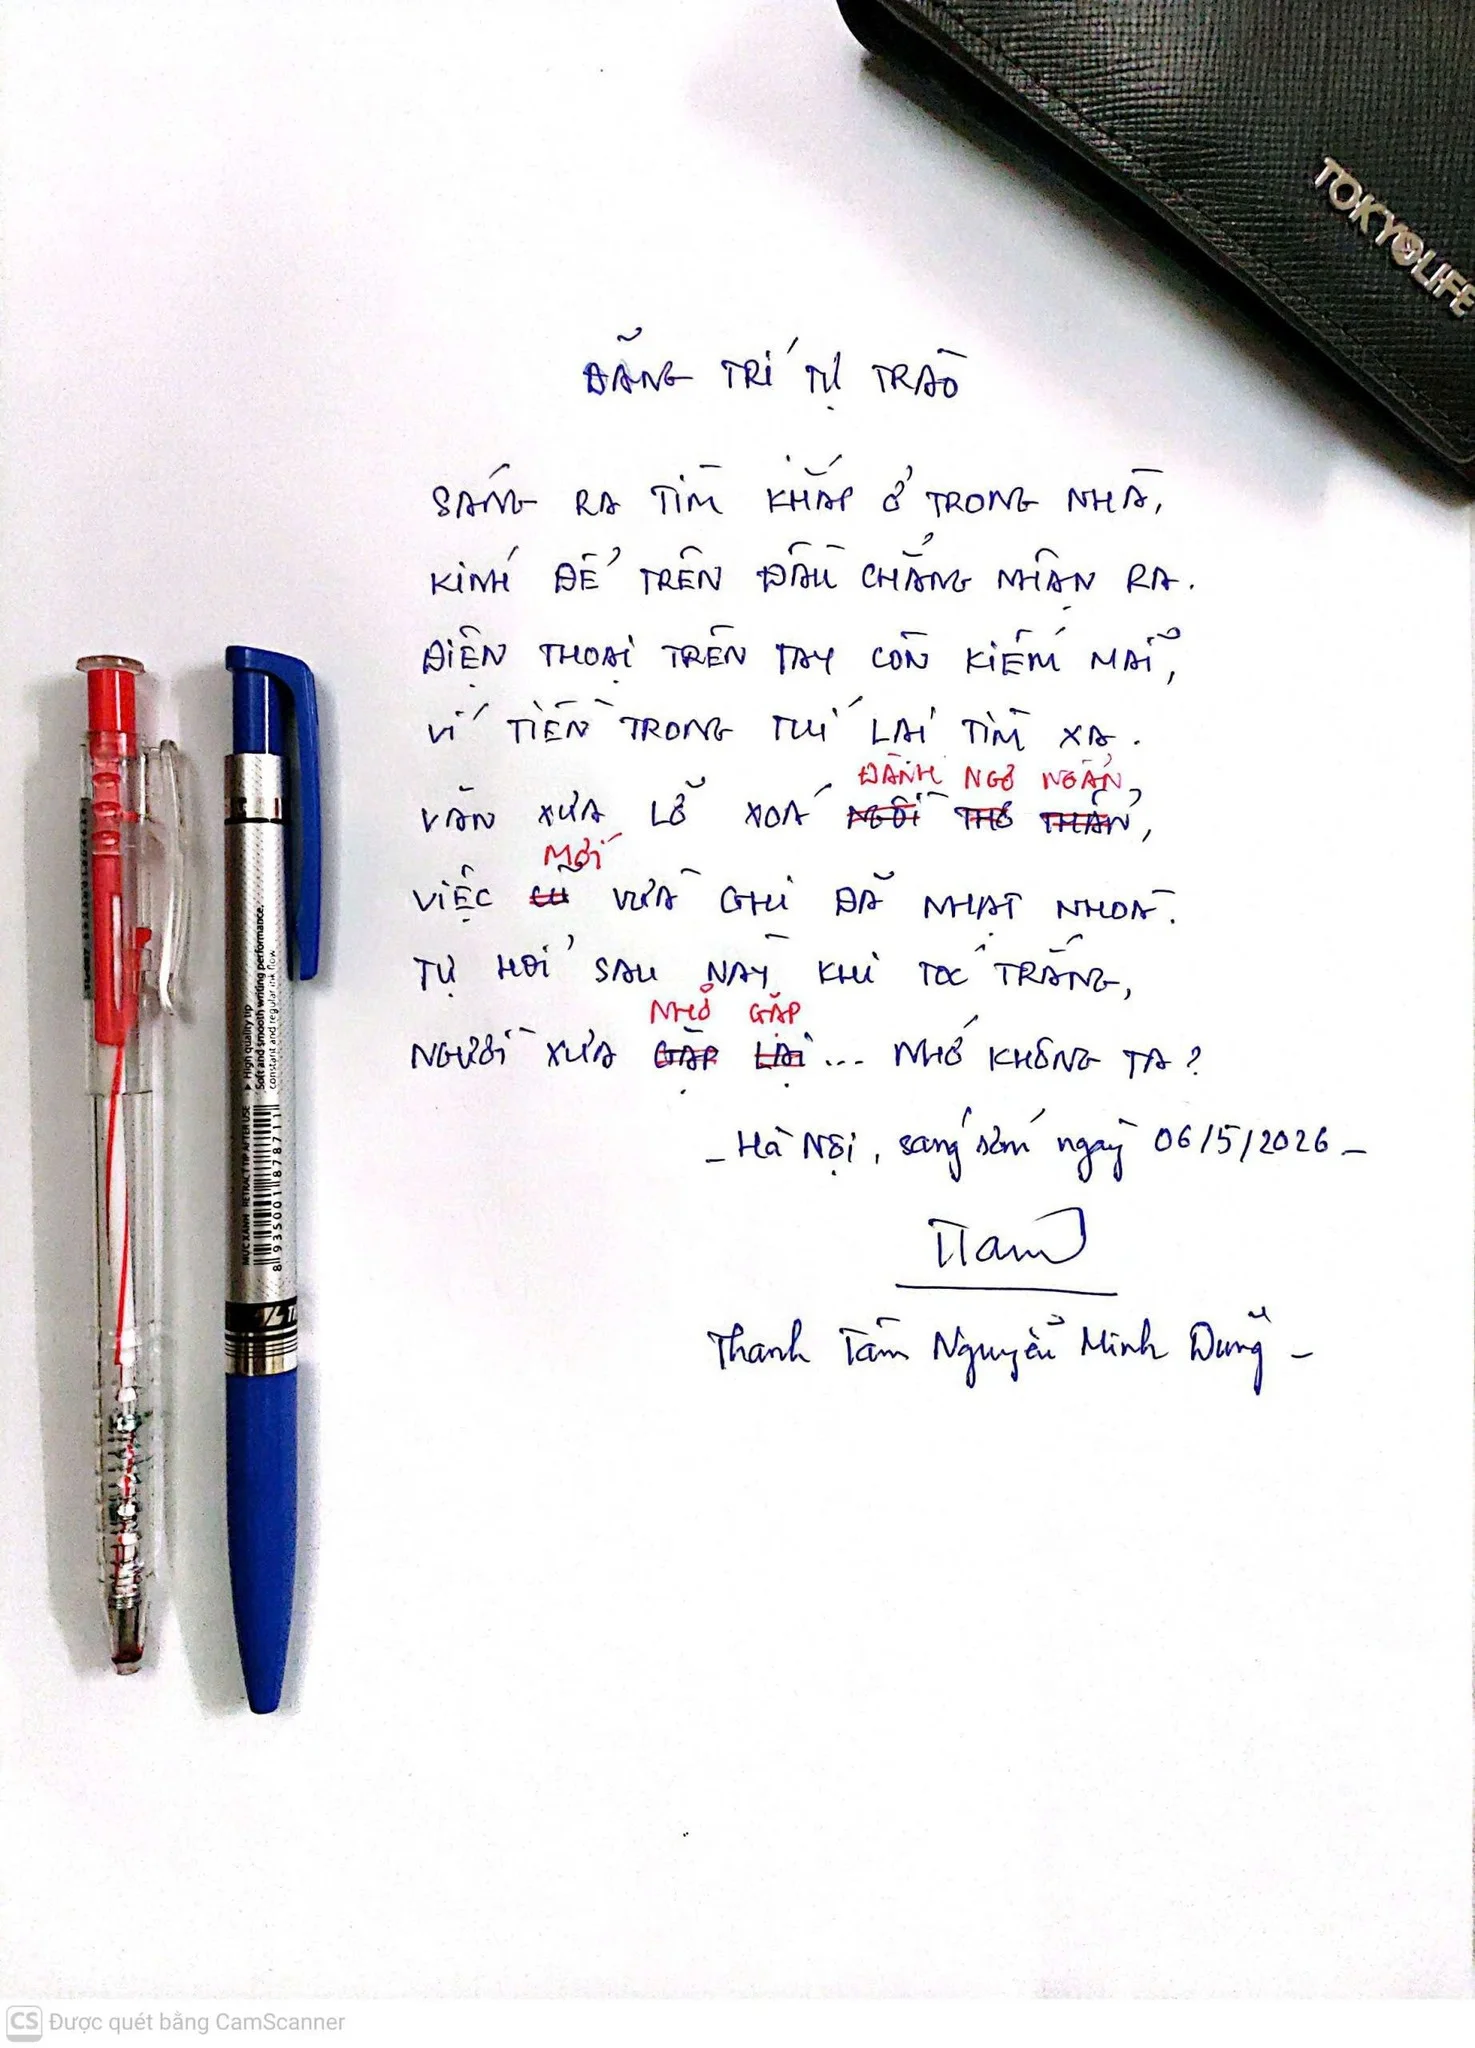 TOKYOLIFE
ĐÃNG TRÍ TỰ TRÀO
SÁNG RA TÌM KHẮP Ở TRONG NHÀ,
KÍNH ĐỂ TRÊN ĐẦU CHẲNG NHẬN RA.
ĐIỆN THOẠI TRÊN TAY CÒN KIẾM MÃI,
VÍ TIỀN TRONG TÚI LẠI TÌM XA.
ĐÀNH NGƠ NGẨN,
VẦN XƯA LỠ XOÁ NGỒI THỞ THẨN,
MỚI
VIỆC CŨ VỪA GHI ĐÃ NHẠT NHOÀ.
TỰ HỎI SAU NÀY KHI TÓC TRẮNG,
NHỠ GẶP
NGƯỜI XƯA GẶP LẠI... NHỚ KHÔNG TA?
- Hà Nội, sáng sớm ngày 06/5/2026 -
TTam
Thanh Tâm Nguyễn Minh Dũng -
MỰC XANH RETRACT TIP AFTER USE
High quality tip
Soft and smooth writing performance.
constant and regular ink flow
8 935001 878711
TL
CS Được quét bằng CamScanner